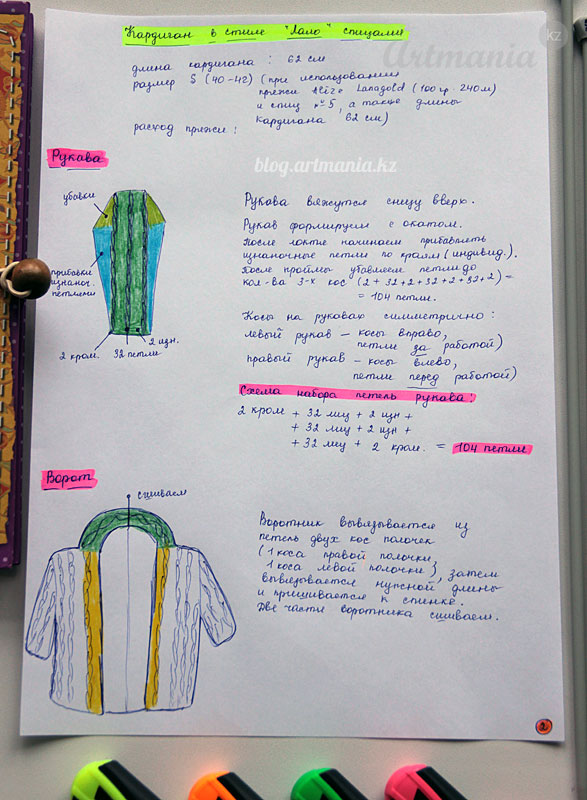 Кардиган в стиле "Лало" спицами
Artmania
kz
длина кардигана: 62 см
размер S (40-42) (при использовании
пряжи Alize Lanagold (100 гр. 240 м)
и спиц №5, а также длины
кардигана 62 см)
расход пряжи:
blog.artmania.kz
Рукава
убавки
прибавки
изнаноч.
петлями
2 кром.
32 петли
2 изн.
Рукава вяжутся снизу вверх.
Рукав формируем с окатом.
После локтя начинаем прибавлять
изнаночные петли по краям (индивид.).
После проймы убавляем петли до
кол-ва 3-х кос (2+32+2+32+2+32+2)=
= 104 петли.
Косы на рукавах симметрично:
левый рукав – косы вправо,
петли за работой)
правый рукав – косы влево,
петли перед работой)
Схема набора петель рукава:
2 кром + 32 лиц + 2 изн +
+ 32 лиц + 2 изн +
+ 32 лиц + 2 кром. = 104 петли
Ворот
сшиваем
Воротник вывязывается из
петель двух кос полочек
(1 коса правой полочки,
1 коса левой полочки), затем
вывязывается нужной длины
и пришивается к спинке.
Две части воротника сшиваем.
2